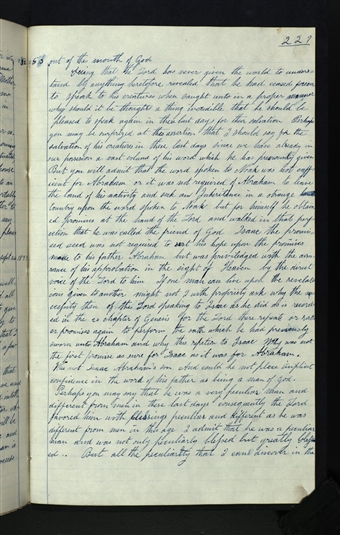 229
out of the mouth of God
Seeing that the Lord has never given the world to understand by anything heretofore revealed that he had ceased forever
to speak to his creatures when sought unto in a proper manner
why should it be thought a thing incredible that he should be
pleased to speak again in these last days for their salvation Perhaps
you may be surprized at this assertion that I should say for the
salvation of his creatures in these last days since we have already in
our possession a vast volume of his word which he has previously given
But you will admit that the word spoken to Noah was not sufficient for Abraham or it was not required of Abraham to leave
the land of his nativity and seek an Inheritance in a strange
country upon the word spoken to Noah but for himself he obtained promises at the hand of the Lord and walked in that perfection that he was called the friend of God Isaac the promised seed was not required to rest his hope upon the promises
made to his father Abraham but was priviledged with the assurance of his approbation in the sight of Heaven by the direct
voice of the Lord to him If one man can live upon the revelations given to another might not I with propriety ask why the necessity then of the Lord speaking to Isaac as he did as is recorded in the 26 chapter of Genesis for the Lord there repeats or rather
promises again to perform the oath which he had previously
sworn unto Abraham and why this repetition to Isaac Why was not
the first promise as sure for Isaac as it was for Abraham.
Was not Isaac Abraham's son And could he not place implicit
confidence in the word of his father as being a man of God.
Perhaps you may say that he was a very peculiar man and
different from men in these last days consequently the Lord
favored him with blessings peculiar and different as he was
different from men in this age I admit that he was a peculiar
man and was not only peculiarly blessed but greatly blessed.. But all the peculiarity that I can discover in the